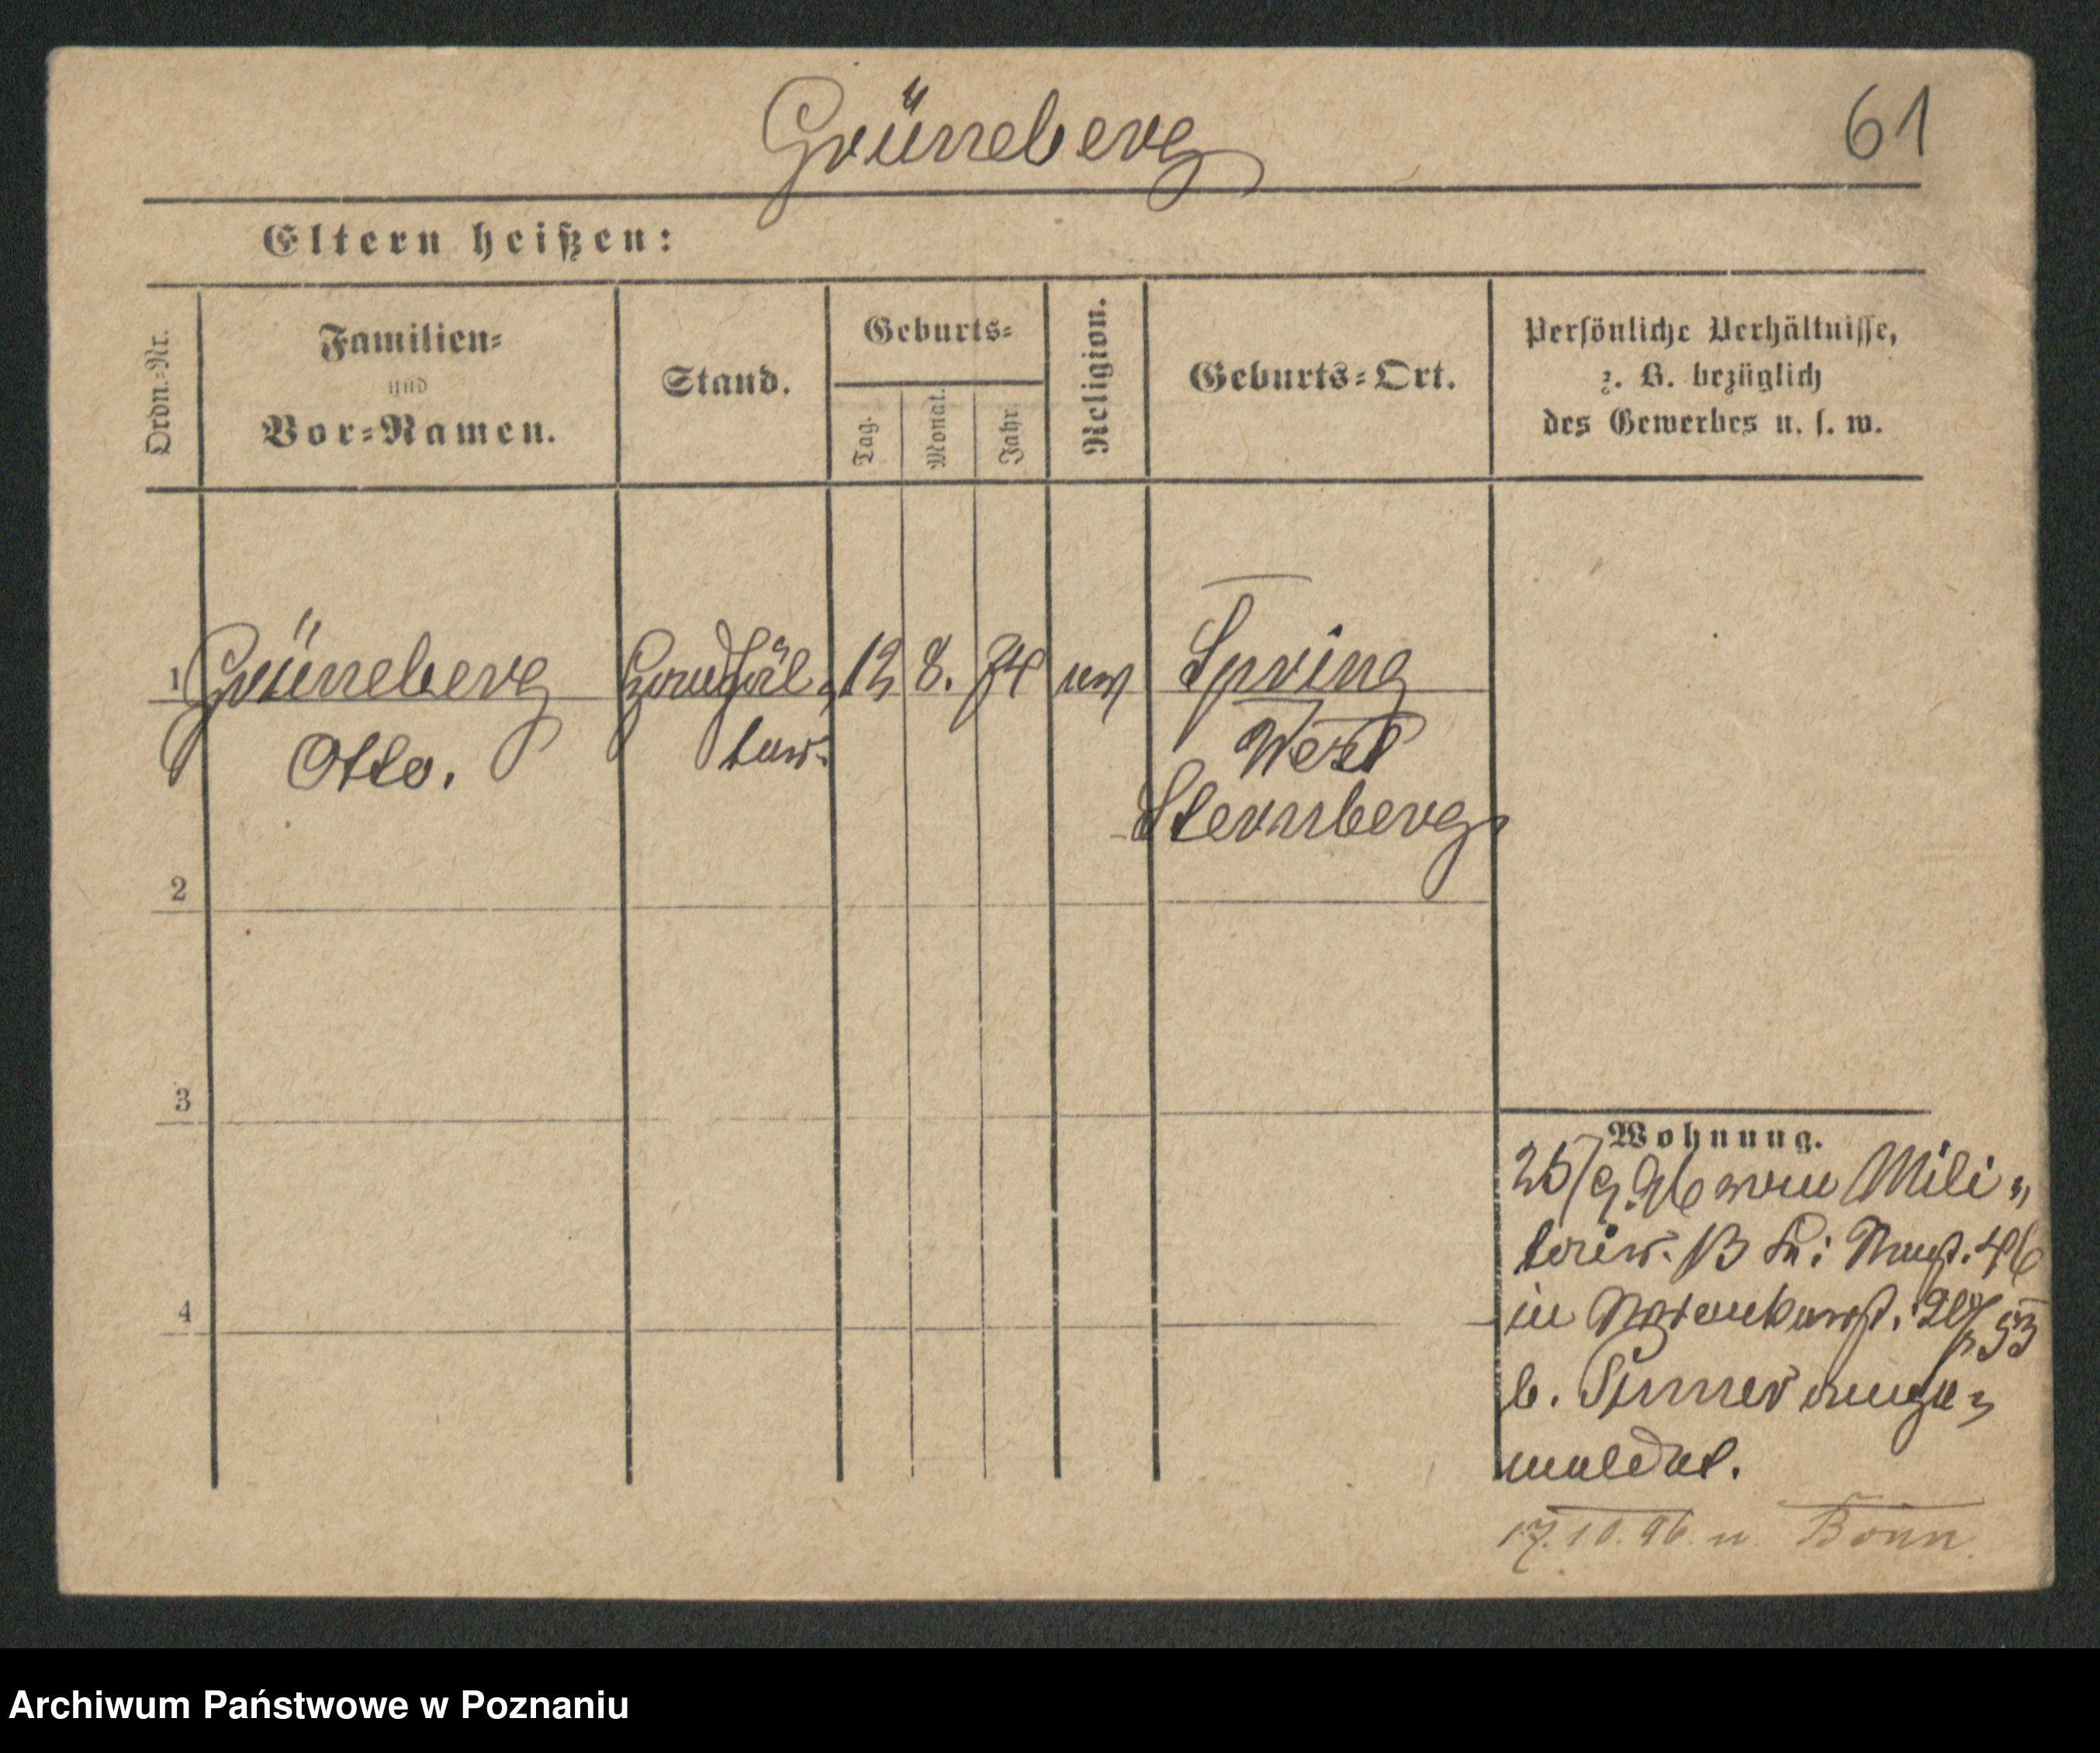 Grüneberg
61
Eltern heißen:
Ordn.-Nr.
Familien-
und
Vor-Namen.
Stand.
Geburts-
Tag.
Monat.
Jahr.
Religion.
Geburts-Ort.
Persönliche Verhältnisse,
z. B. bezüglich
des Gewerbes u. s. w.
1 Grüneberg 12 8. 74 ev Spring
Otto. West
Sternberg
2
3
4
Wohnung.
25/9. 96 vom Mili-
tair. 46
in 33
b. ange-
meldet.
17.10.96 n. Bonn.
Archiwum Państwowe w Poznaniu